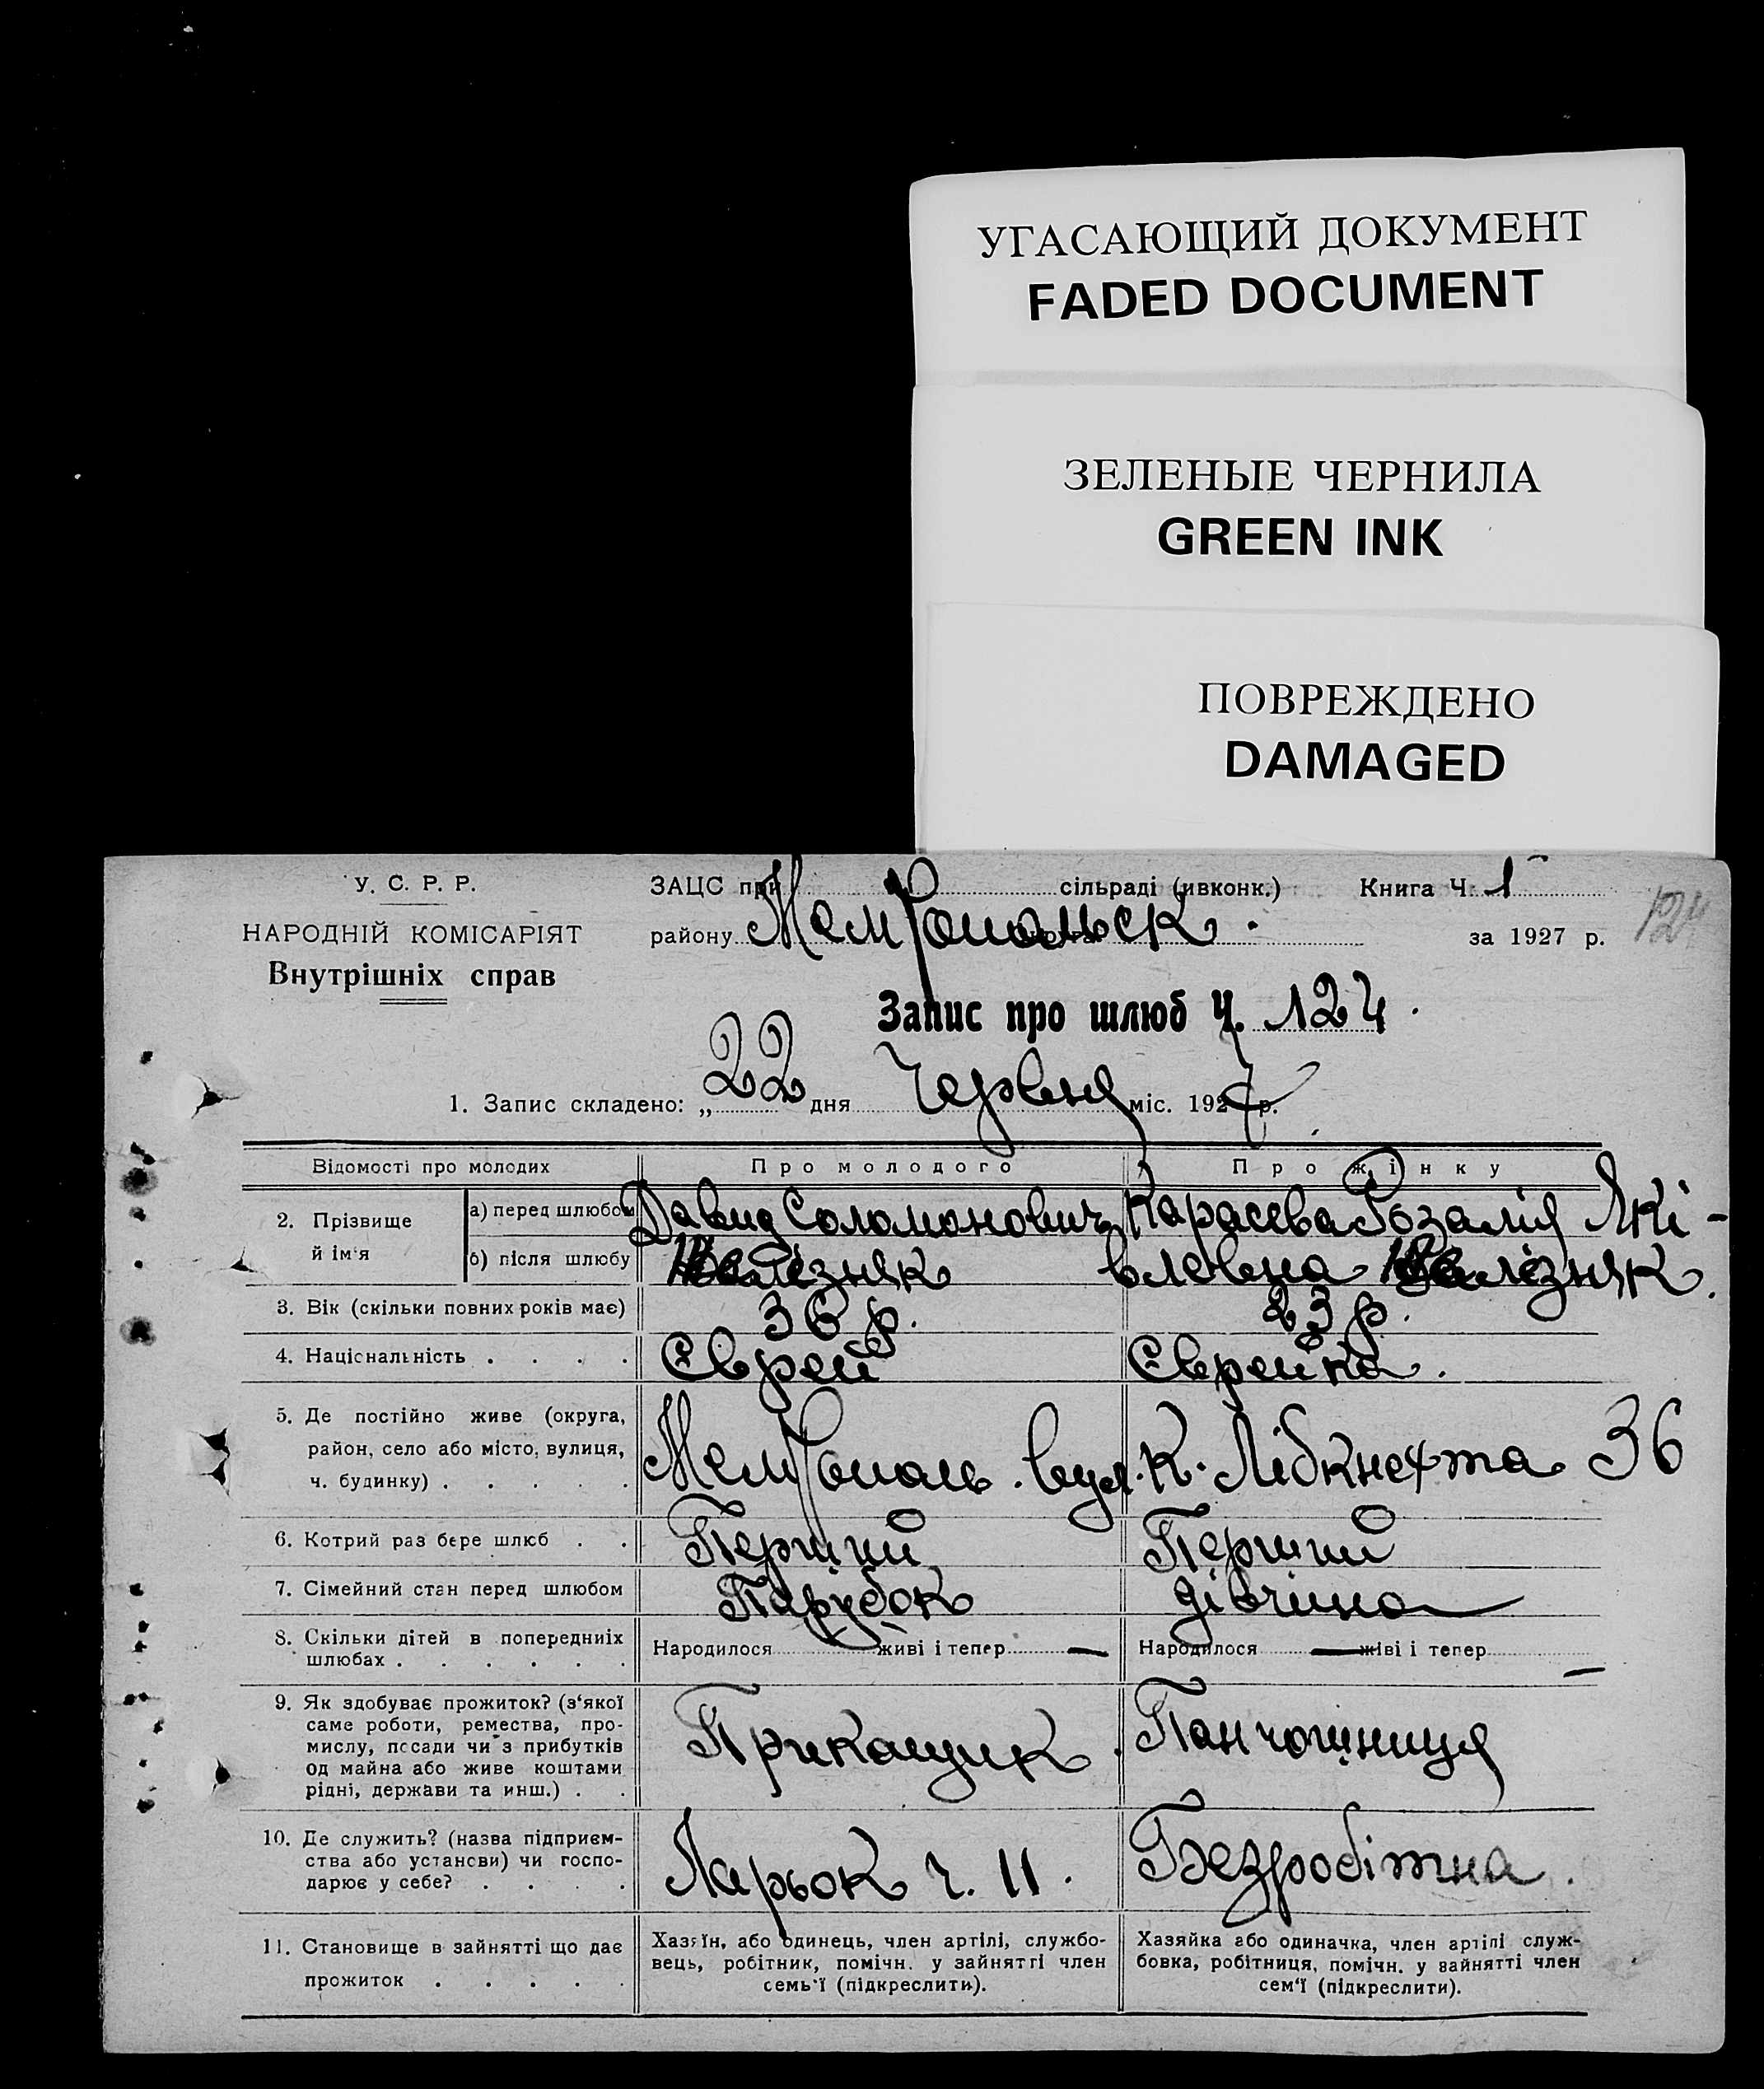 УГАСАЮЩИЙ ДОКУМЕНТ
FADED DOCUMENT
ЗЕЛЕНЫЕ ЧЕРНИЛА
GREEN INK
ПОВРЕЖДЕНО
DAMAGED
У. С. Р. Р.
НАРОДНІЙ КОМІСАРІЯТ
Внутрішніх справ
ЗАЦС при сільраді (ивконк.) Книга Ч. 1
району Мелітопольск. за 1927 р.
124
Запис про шлюб Ч. 124.
1. Запис складено: „ 22 дня Червня міс. 1927 р.
Відомості про молодих Про молодого Про жінку
2. Прізвище й ім'я
а) перед шлюбом Давид Соломонович Карасева Розалія Які-
б) після шлюбу Желізняк влевна Желізняк.
3. Вік (скільки повних років має) 36 р. 23 р.
4. Національність . . . . Єврей Єврейка.
5. Де постійно живе (округа,
район, село або місто, вулиця,
ч. будинку) . . . . . Мелітополь. вул. К. Лібкнехта 36
6. Котрий раз бере шлюб . . Перший Перший
7. Сімейний стан перед шлюбом Парубок дівчина
8. Скільки дітей в попередниіх
шлюбах . . . . . . Народилося живі і тепер — Народилося — живі і тепер —
9. Як здобуває прожиток? (з'якої
саме роботи, ремества, про-
мислу, посади чи з прибутків
од майна або живе коштами
рідні, держави та инш.) . . Прикащик. Панчошниця
10. Де служить? (назва підприєм-
ства або установи) чи госпо-
дарює у себе? . . . . Ларьок ч. 11. Безробітна.
11. Становище в зайнятті що дає
прожиток . . . . .
Хазяїн, або одинець, член артілі, службо-
вець, робітник, помічн. у зайнятті член
семь'ї (підкреслити).
Хазяйка або одиначка, член артілі служ-
бовка, робітниця, помічн. у зайнятті член
сем'ї (підкреслити).